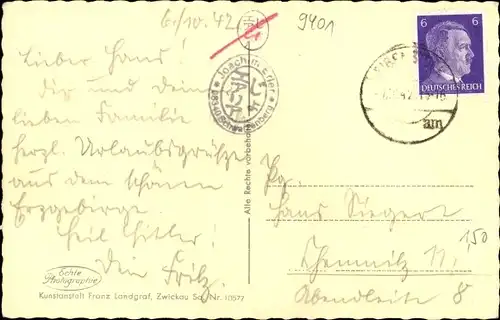 6./10. 42
9401
Lieber Hans!
Dir und dein
lieben Familie
herzl. Urlaubsgrüße
aus dem schönen
Erzgebirge.
Heil Hitler!
Dein Fritz.
Echte
Photographie
Kunstanstalt Franz Landgraf, Zwickau Sa. Nr. 10577
Alle Rechte vorbehalten
Joachim Erler
08340 Schwarzenberg
6 6
DEUTSCHES REICH
am
Pg.
Hans Siegert
Chemnitz
Abendleite 8
1,50